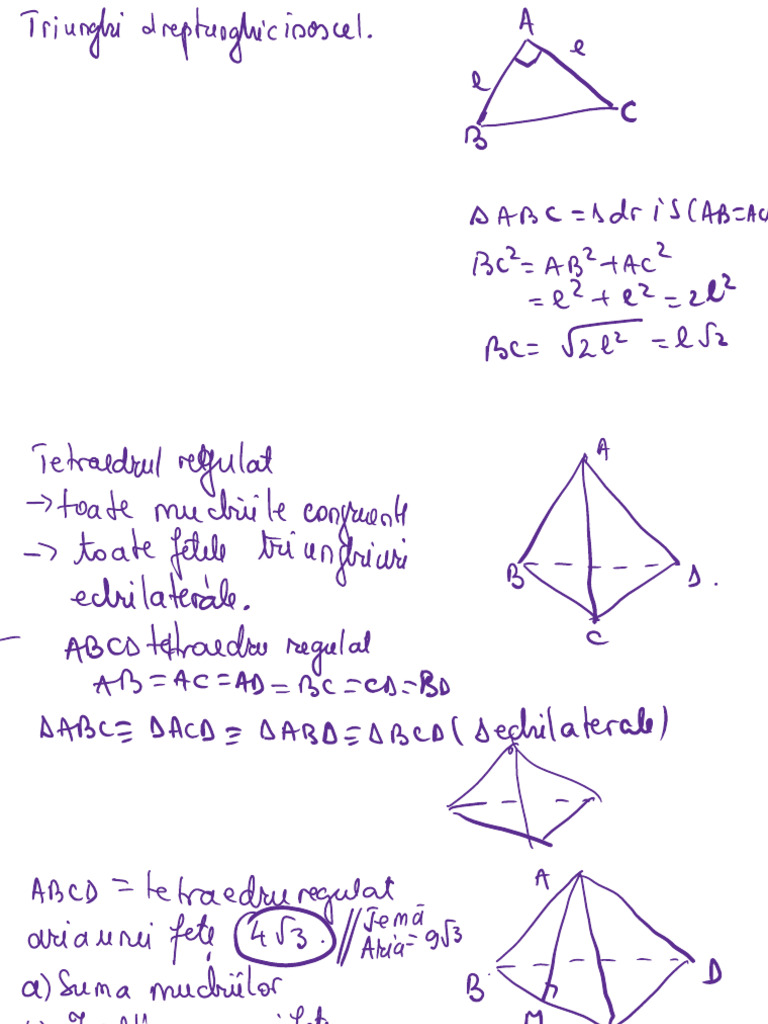 Triunghi dreptunghic isoscel.
A
l
l
B
C
ΔABC = Δ dr is (AB=AC
BC² = AB² + AC²
= l² + l² = 2l²
BC = √2l² = l√2
Tetraedrul regulat
→ toate muchiile congruente
→ toate fețele triunghiuri
echilaterale.
ABCD tetraedru regulat
AB = AC = AD = BC = CD = BD
ΔABC ≡ ΔACD ≡ ΔABD ≡ ΔBCD (Δ echilaterale)
A
B
D.
C
ABCD = tetraedru regulat
aria unei fețe 4√3. // Temă
Aria = 9√3
a) Suma muchiilor
A
B
D
M